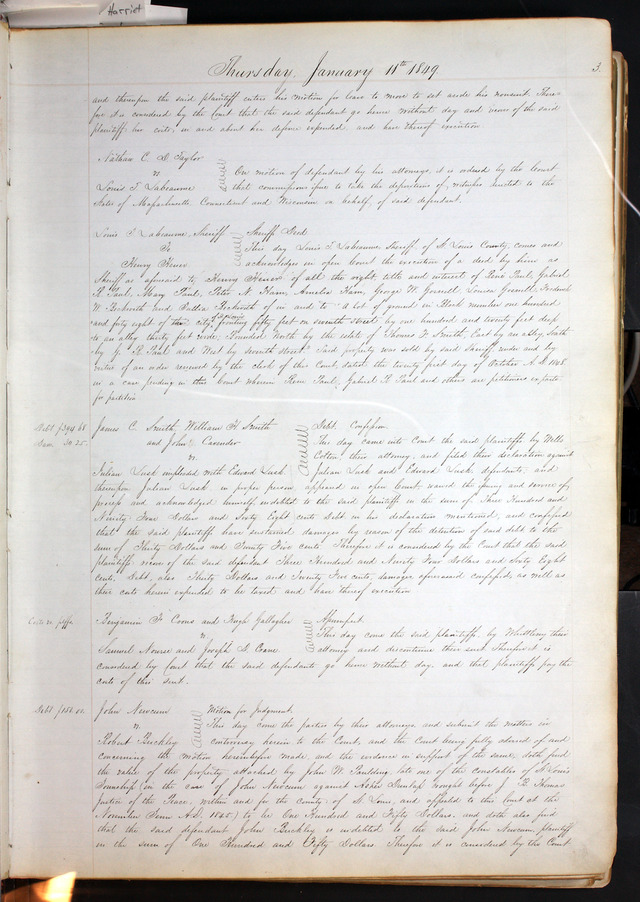 Harriet
Thursday, January 11th 1849.
3.
and thereupon the said plaintiff enters his motion for leave to move to set aside his nonsuit. There-
fore it is considered by the Court that the said defendant go hence without day and recover of the said
plaintiff his costs, in and about his defence expended, and have thereof execution.
Nathan C. D. Taylor
vs
Louis T. Labeaume
On motion of defendant by his attorneys, it is ordered by the Court
that commissions issue to take the depositions of witnesses resident in the
States of Massachusetts Connecticut and Wisconsin on behalf of said defendant.
Louis T. Labeaume Sheriff
To
Henry
Sheriff Deed
This day Louis T. Labeaume, Sheriff of St. Louis County, comes and
acknowledges in open Court the execution of a deed by him as
Sheriff as aforesaid to Henry of all the right title and interest of René Paul, Gabriel
R. Paul, Mary Paul, Peter N. Ham, Amelia Ham, George W. Louisa Frederick
W. Beckwith and Beckwith of in and to "A lot of ground in Block number one hundred
and forty eight of the city of St Louis fronting fifty feet on seventh street, by one hundred and twenty feet deep
to an alley thirty feet wide, Bounded North by the estate of Thomas F. Smith, East by an alley, South
by G. R. Paul and West by seventh street. Said property was sold by said Sheriff under and by
virtue of an order received by the clerk of this Court, dated the twenty first day of October A.D. 1848.
in a case pending in this Court wherein Rene Paul, Gabriel R. Paul and others are petitioners ex parte
for partition
Debt $394.68
Dam. 30.25.
James C. Smith, William H. Smith
and John Cavender
vs.
Julian Lusk impleaded with Edward Lusk
Debt. Confession
This day came into Court the said plaintiffs by Wells
Cotton their attorney, and filed their declaration against
Julian Lusk and Edward Lusk, defendants, and
thereupon Julian Lusk in proper person appeared in open Court, waived the suing and service of
process and acknowledged himself indebted to the said plaintiffs in the sum of Three Hundred and
Ninety Four Dollars and Sixty Eight cents debt in his declaration mentioned, and confessed
that the said plaintiffs have sustained damages by reason of the detention of said debt to the
sum of Thirty Dollars and Twenty Five cents. Therefore it is considered by the Court that the said
plaintiffs recover of the said defendant Three Hundred and Ninety Four Dollars and Sixty Eight
cents, Debt, also Thirty Dollars and Twenty Five cents, damages aforesaid confessed, as well as
their costs herein expended to be taxed and have thereof execution
Costs vs. plffs.
Benjamin F. Coons and Hugh Gallagher
vs.
Samuel Nourse and Joseph G. Crane
Assumpsit.
This day come the said plaintiffs, by their
attorney and discontinue their suit. Therefore it is
considered by Court that the said defendants go hence without day, and that plaintiffs pay the
costs of this suit.
Debt $150.00.
John Newcum
vs
Robert Buckley
Motion for Judgment.
This day come the parties by their attorneys and submit the matters in
controversy herein to the Court, and the Court being fully advised of and
concerning the motion hereinbefore made and the evidence in support of the same, doth find
the value of the property attached by John W. Paulding, late one of the constables of St Louis
Township (in the case of John Newcum against Asher Dunlap brought before J. R. Thomas
justice of the Peace, within and for the county of St. Louis, and appealed to this Court at the
November Term A.D. 1845) to be One Hundred and Fifty Dollars. and doth also find
that the said defendant John Buckley is indebted to the said John Newcum, plaintiff
in the sum of One Hundred and Fifty Dollars. Therefore it is considered by the Court